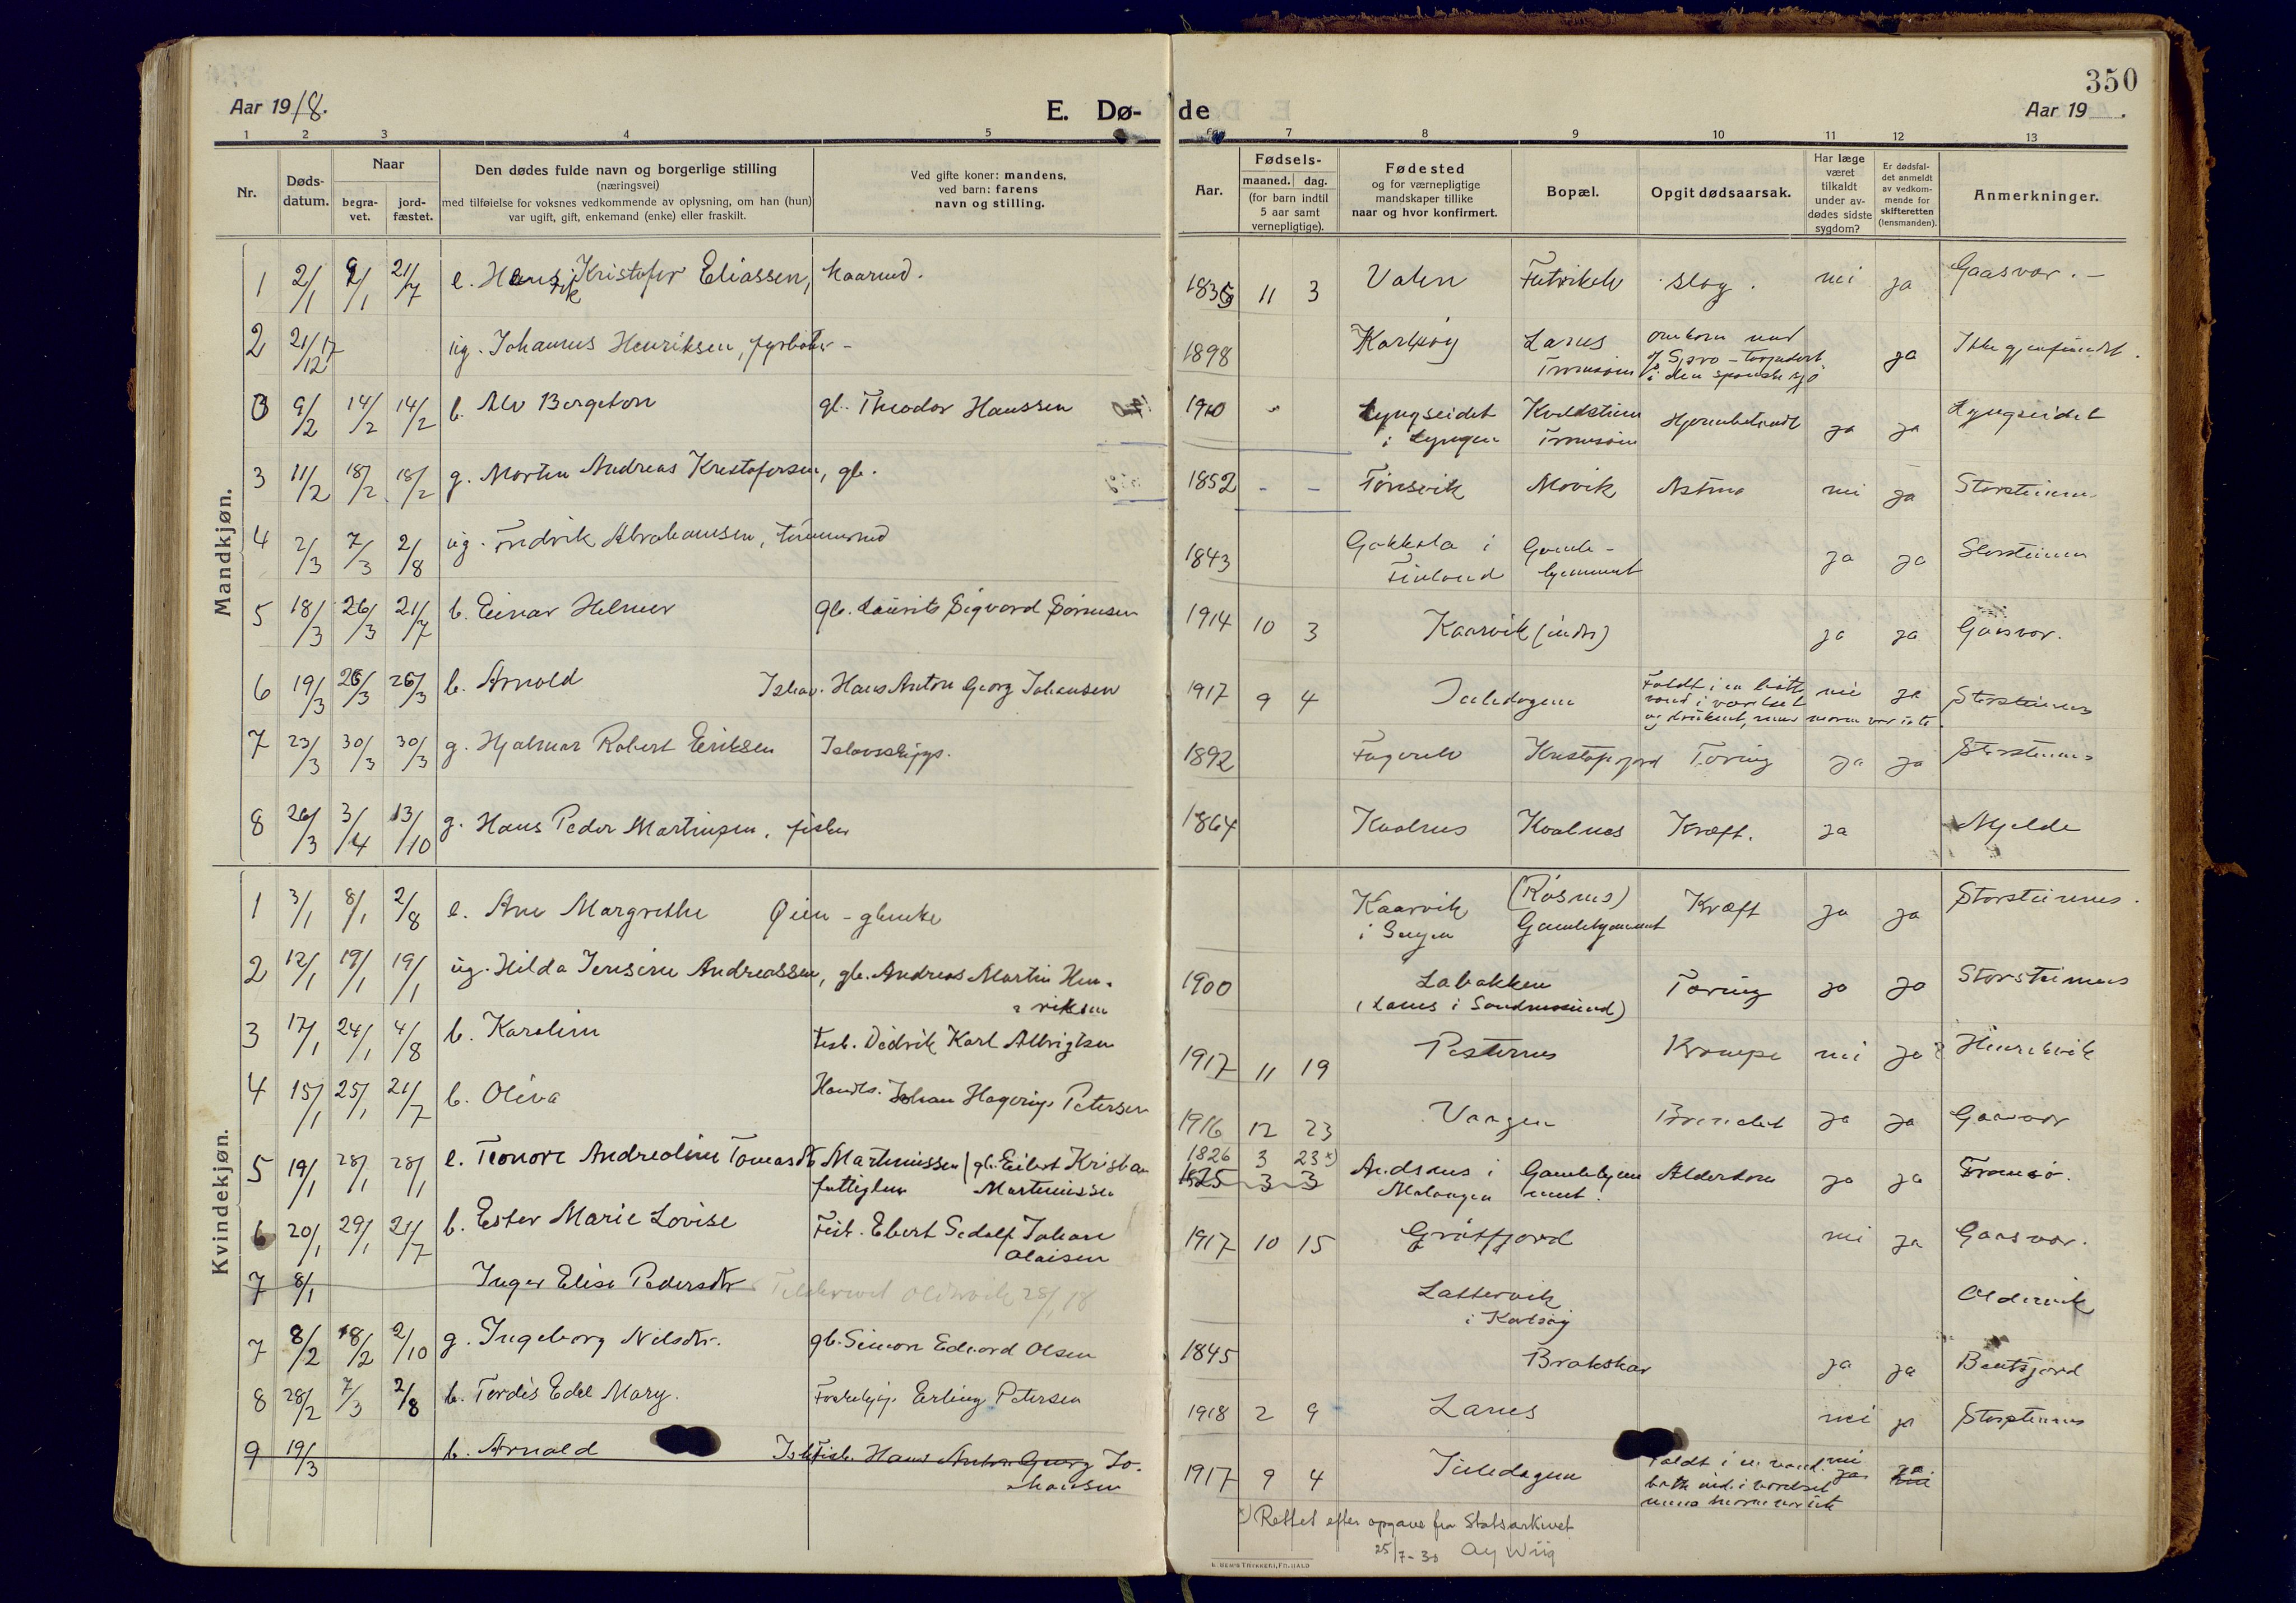 350
Aar 1918.
E. Dø-
de
Aar 19
1 2 3 4 5 6 7 8 9 10 11 12 13
Nr.
Døds-
datum.
Naar
begra-
vet.
jord-
fæstet.
Den dødes fulde navn og borgerlige stilling
(næringsvei)
med tilføielse for voksnes vedkommende av oplysning, om han (hun)
var ugift, gift, enkemand (enke) eller fraskilt.
Ved gifte koner: mandens,
ved barn: farens
navn og stilling.
Aar.
Fødsels-
maaned. dag.
(for barn indtil
5 aar samt
vernepligtige).
Fødested
og for værnepligtige
mandskaper tillike
naar og hvor konfirmert.
Bopæl.
Opgit dødsaarsak.
Har læge
været
tilkaldt
under av-
dødes sidste
sygdom?
Er dødsfal-
det anmeldt
av vedkom-
mende for
skifteretten
(lensmanden).
Anmerkninger.
Mandkjøn.
1 2/1 9/1 21/7 e. Kristofer Eliassen, 11 3 Valen slag. nei ja Gaasvær.
2 21/12 17 ug. Johannes Henriksen, fyrbøter 1898 Karlsøy Lanes
Tromsøin
omkom med
i den spanske sjø ja Ikke gjenfundet.
3 9/2 14/2 14/2 b. Alv Bergeton gb. Theodor Hanssen 1910 Lyngseidet
i Lyngen
Tromsøin
Hjernebetændt ja ja Lyngseidet
3 11/2 18/2 18/2 g. Morten Andreas Kristofersen, gb. 1852 - - Tønsvik Movik Astma nei ja Storsteinnes
4 2/3 7/3 2/8 ug. Fredrik Abrahamsen, tømmermd 1843 i
Finland
Gamle-
hjemmet ja ja Storsteinnes
5 18/3 26/3 21/7 b. Einar Helmer gb. Laurits Sigvard Sørensen 1914 10 3 Kaarvik (indre) ja ja Gaasvær.
6 19/3 26/3 26/3 b. Arnold Ishav. Hans Anton Georg Johansen 1917 9 4 Juledagen Faldt i en bøtte
vand i værelset
og druknet, mens moren var ute. nei ja Storsteinnes
7 23/3 30/3 30/3 g. Hjalmar Robert Eriksen Ishavsskipp. 1892 Fagerelv Tæring ja ja Storsteinnes
8 26/3 3/4 13/10 g. Hans Peder Martinsen, fisker 1864 Kvalnes Kvalnes Kræft. ja Mjelde
Kvindekjøn.
1 3/1 8/1 2/8 e. Ane Margrethe Øien - gbenke Kaarvik
(Røsnes)
Gamlehjemmet Kræft ja ja Storsteinnes.
2 12/1 19/1 19/1 ug. Hilda Jensine Andreassen, gb. Andreas Martin Hen-
riksen 1900 Labakken
(Lanes i Sandnessund) Tæring ja ja Storsteinnes
3 17/1 24/1 4/8 b. Karoline Fisk. Didrik Karl Albrigtsen 1917 11 19 Krampe nei ja Henrikvik
4 15/1 25/1 21/7 b. Oliva Handls. Johan Hagerup Petersen 1916 12 23 Vaagen ja ja Gaasvær
5 19/1 28/1 28/1 e. Tomasdtr Martinussen gb. Eilert Kristian
Martinussen 1826 3 23 x)
1825 3 3 Andsnes i
Malangen
Gamlehjem-
met. Alderdom ja ja Tromsø.
6 20/1 29/1 21/7 b. Ester Marie Lovise Fisk. Ebert Sedolf Johan
Olaisen 1917 10 15 Grøtfjord nei ja Gaasvær.
7 8/1 Inger Elise Pedersdtr Oldervik 28/1 18 Lattervik
i Karlsøy Oldervik
7 8/2 18/2 2/10 g. Ingeborg Nilsdtr. gb. Simon Edvard Olsen 1845 ja ja Bentsjord
8 28/2 7/3 2/8 b. Tordis Edel Mary. Erling Petersen 1918 2 9 Lanes nei ja Storsteinnes
9 19/3 b. Arnold Fisk. Hans Anton Georg Jo-
hansen 1917 9 4 Juledagen Faldt i en
mens moren var ute nei
ja
x) Rettet efter opgave fra Statsarkivet
25/7-30 Wiig